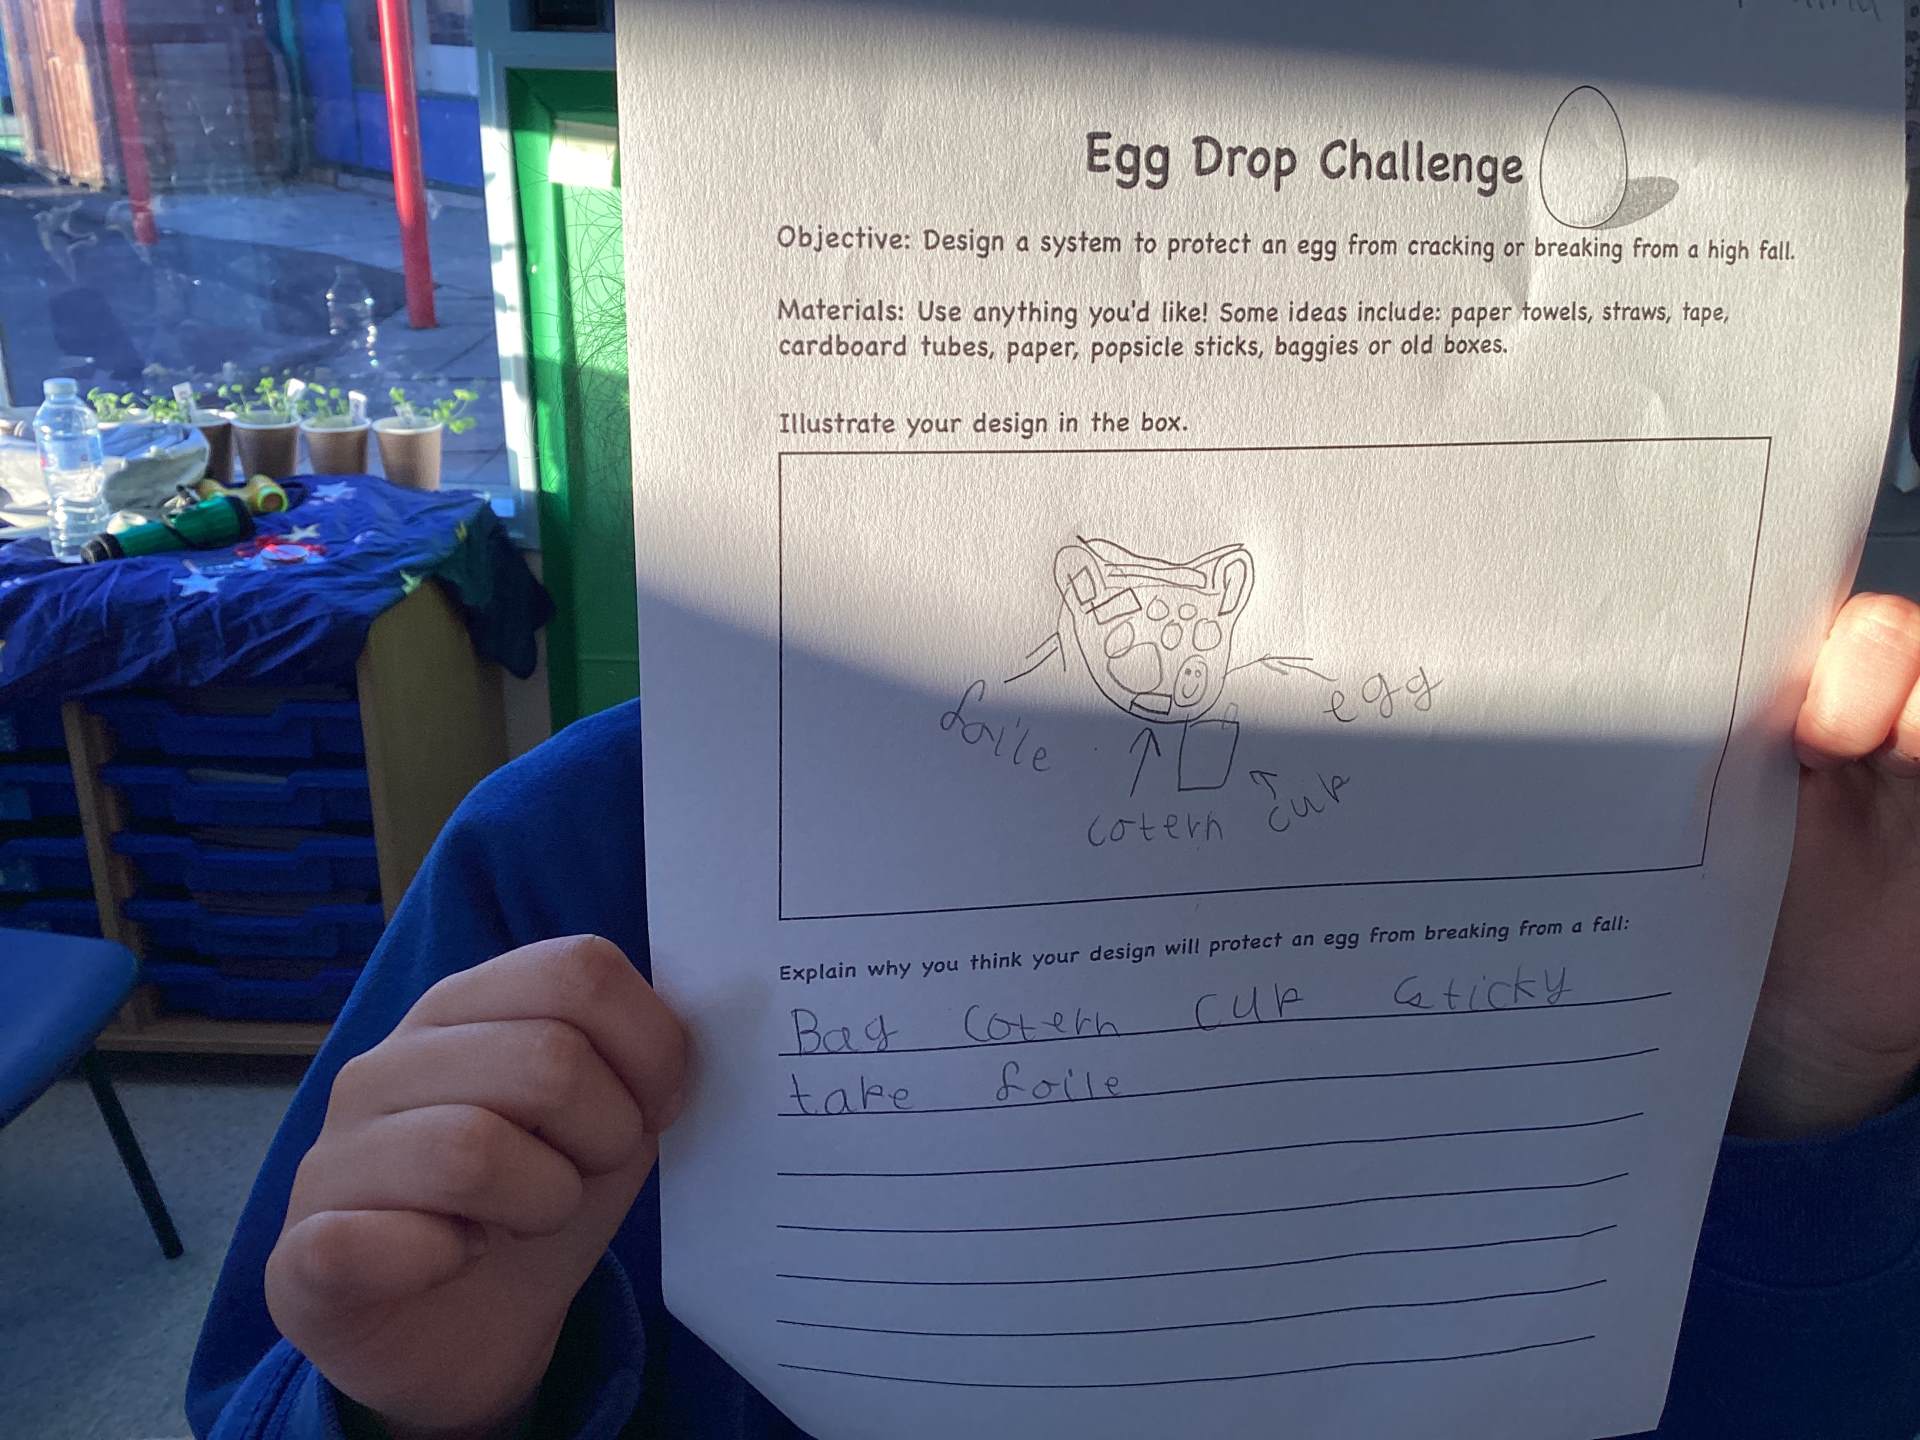 Egg Drop Challenge
Objective: Design a system to protect an egg from cracking or breaking from a high fall.
Materials: Use anything you'd like! Some ideas include: paper towels, straws, tape,
cardboard tubes, paper, popsicle sticks, baggies or old boxes.
Illustrate your design in the box.
foile
egg
cotern
cup
Explain why you think your design will protect an egg from breaking from a fall:
Bag cotern cup sticky
tape foile